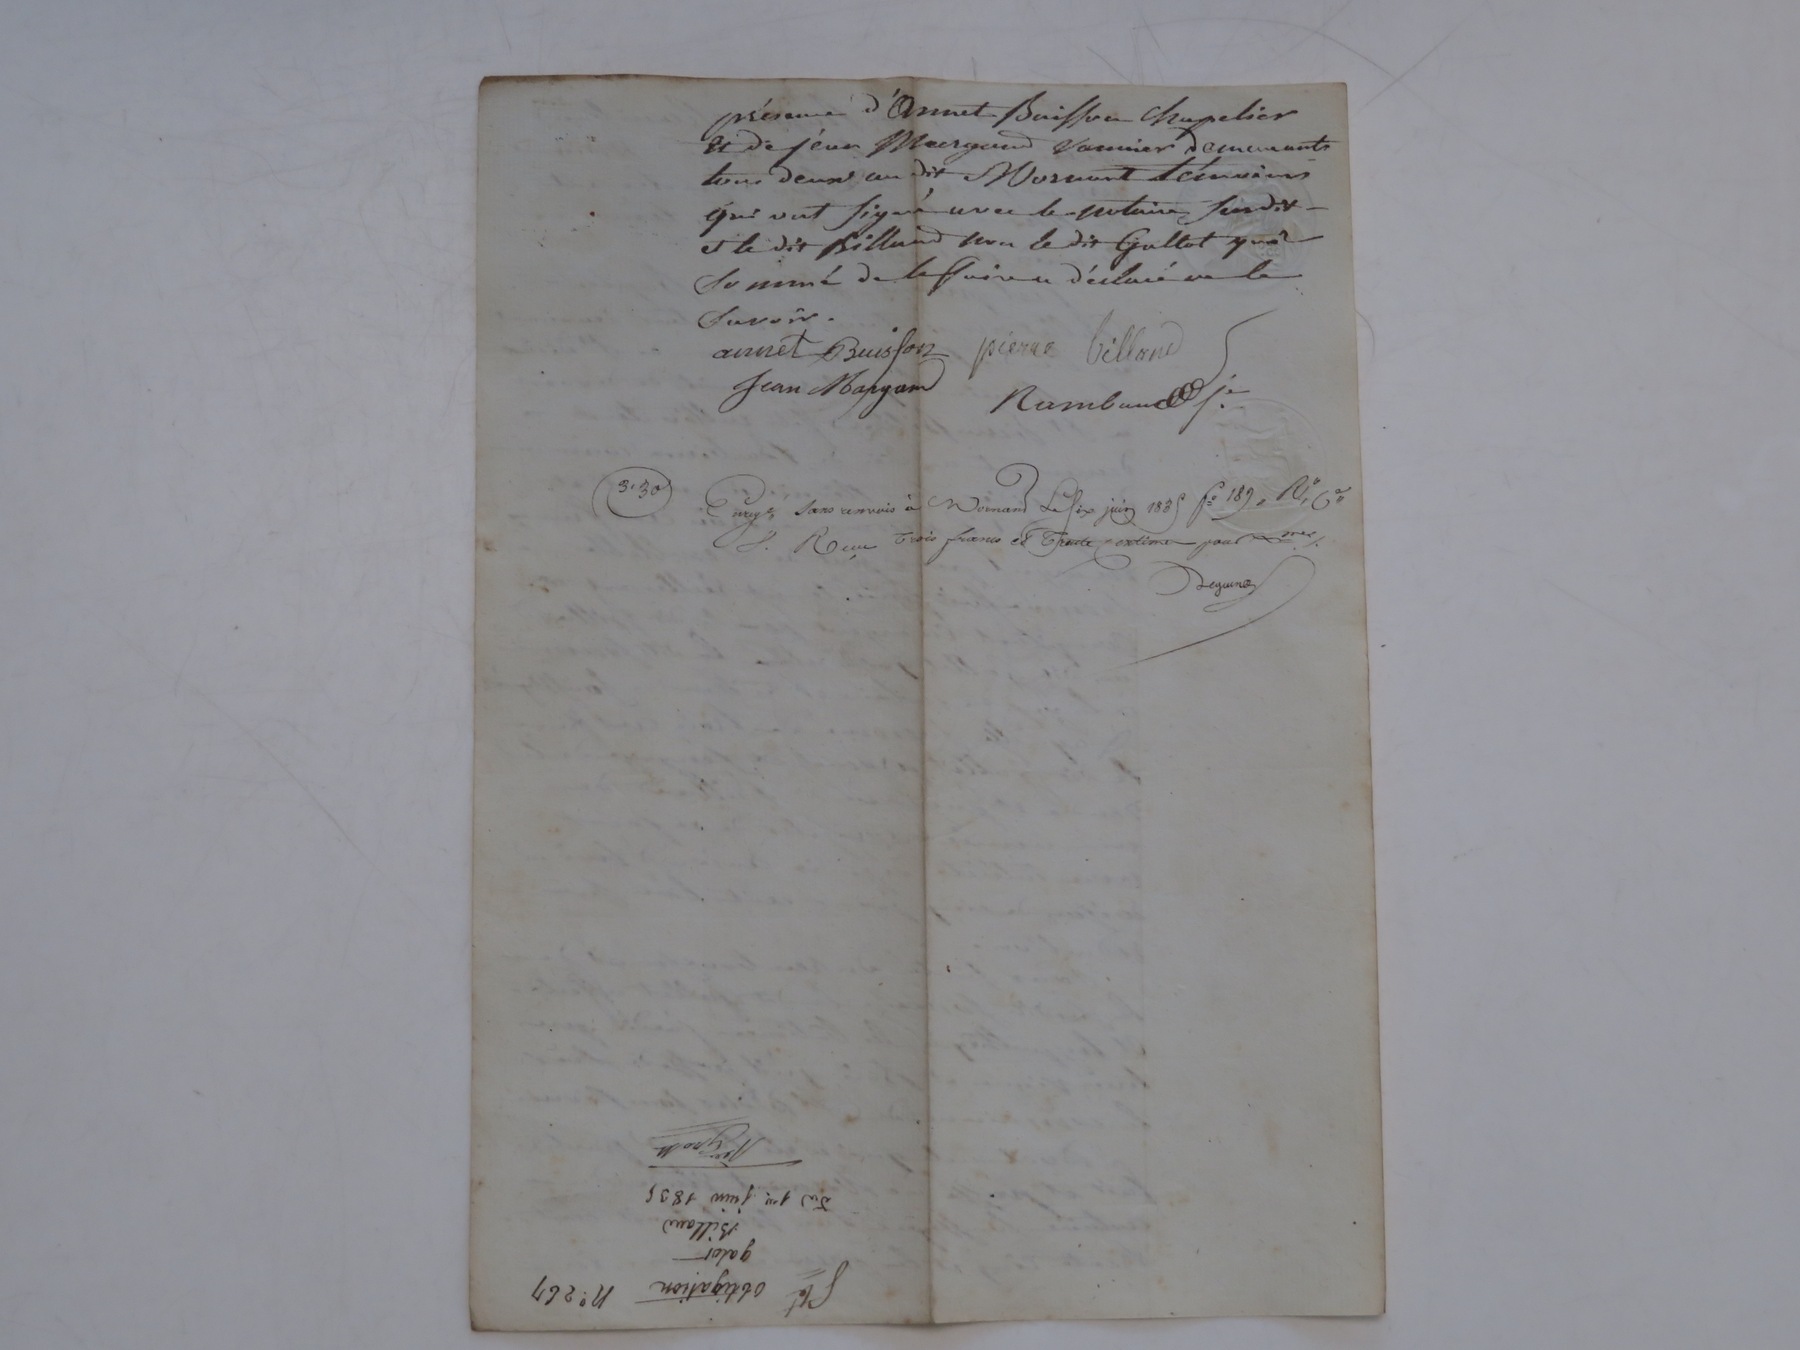 présence d'Annet Buisson Chapelier
et de jean Margand vannier demeurants
tous deux au dit Mornant témoins
qui ont signé avec le notaire susdit
et le dit Billand non le dit Gallot qui
sommé de le faire a déclaré ne le
savoir.
annet Buisson pierre billand
Jean Margand
Rambaud
3.30
sans renvois à Mornant Le six juin 1835 f.º 189
Reçu trois francs et Trente centimes pour
N.º 267
obligation
galot
Billand
Du 1er juin 1835